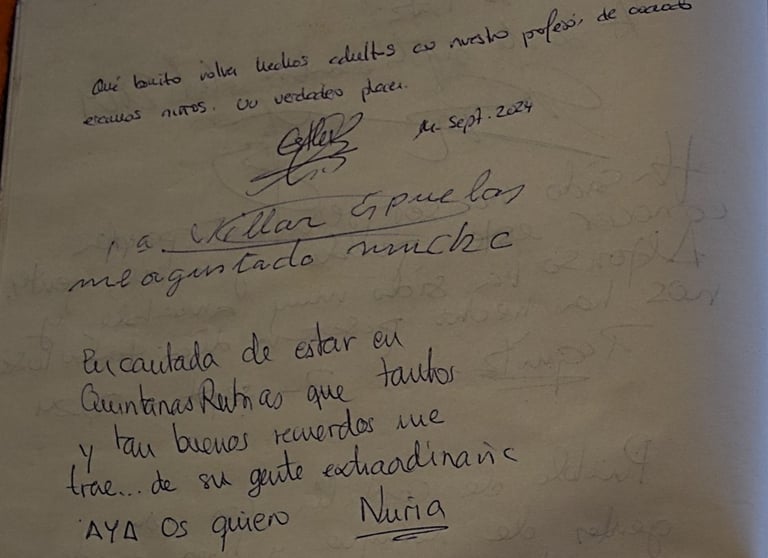 Qué bonito volver hechos adultos con nuestro profesor, de cuando
éramos niños. Un verdadero placer.
Esther
14 Sept. 2024
Villar Espuelas
me agustado mucho
Encantada de estar en
Quintanas Rubias que tantos
y tan buenos recuerdos me
trae... de su gente extraordinaria
AYA Os quiero Nuria